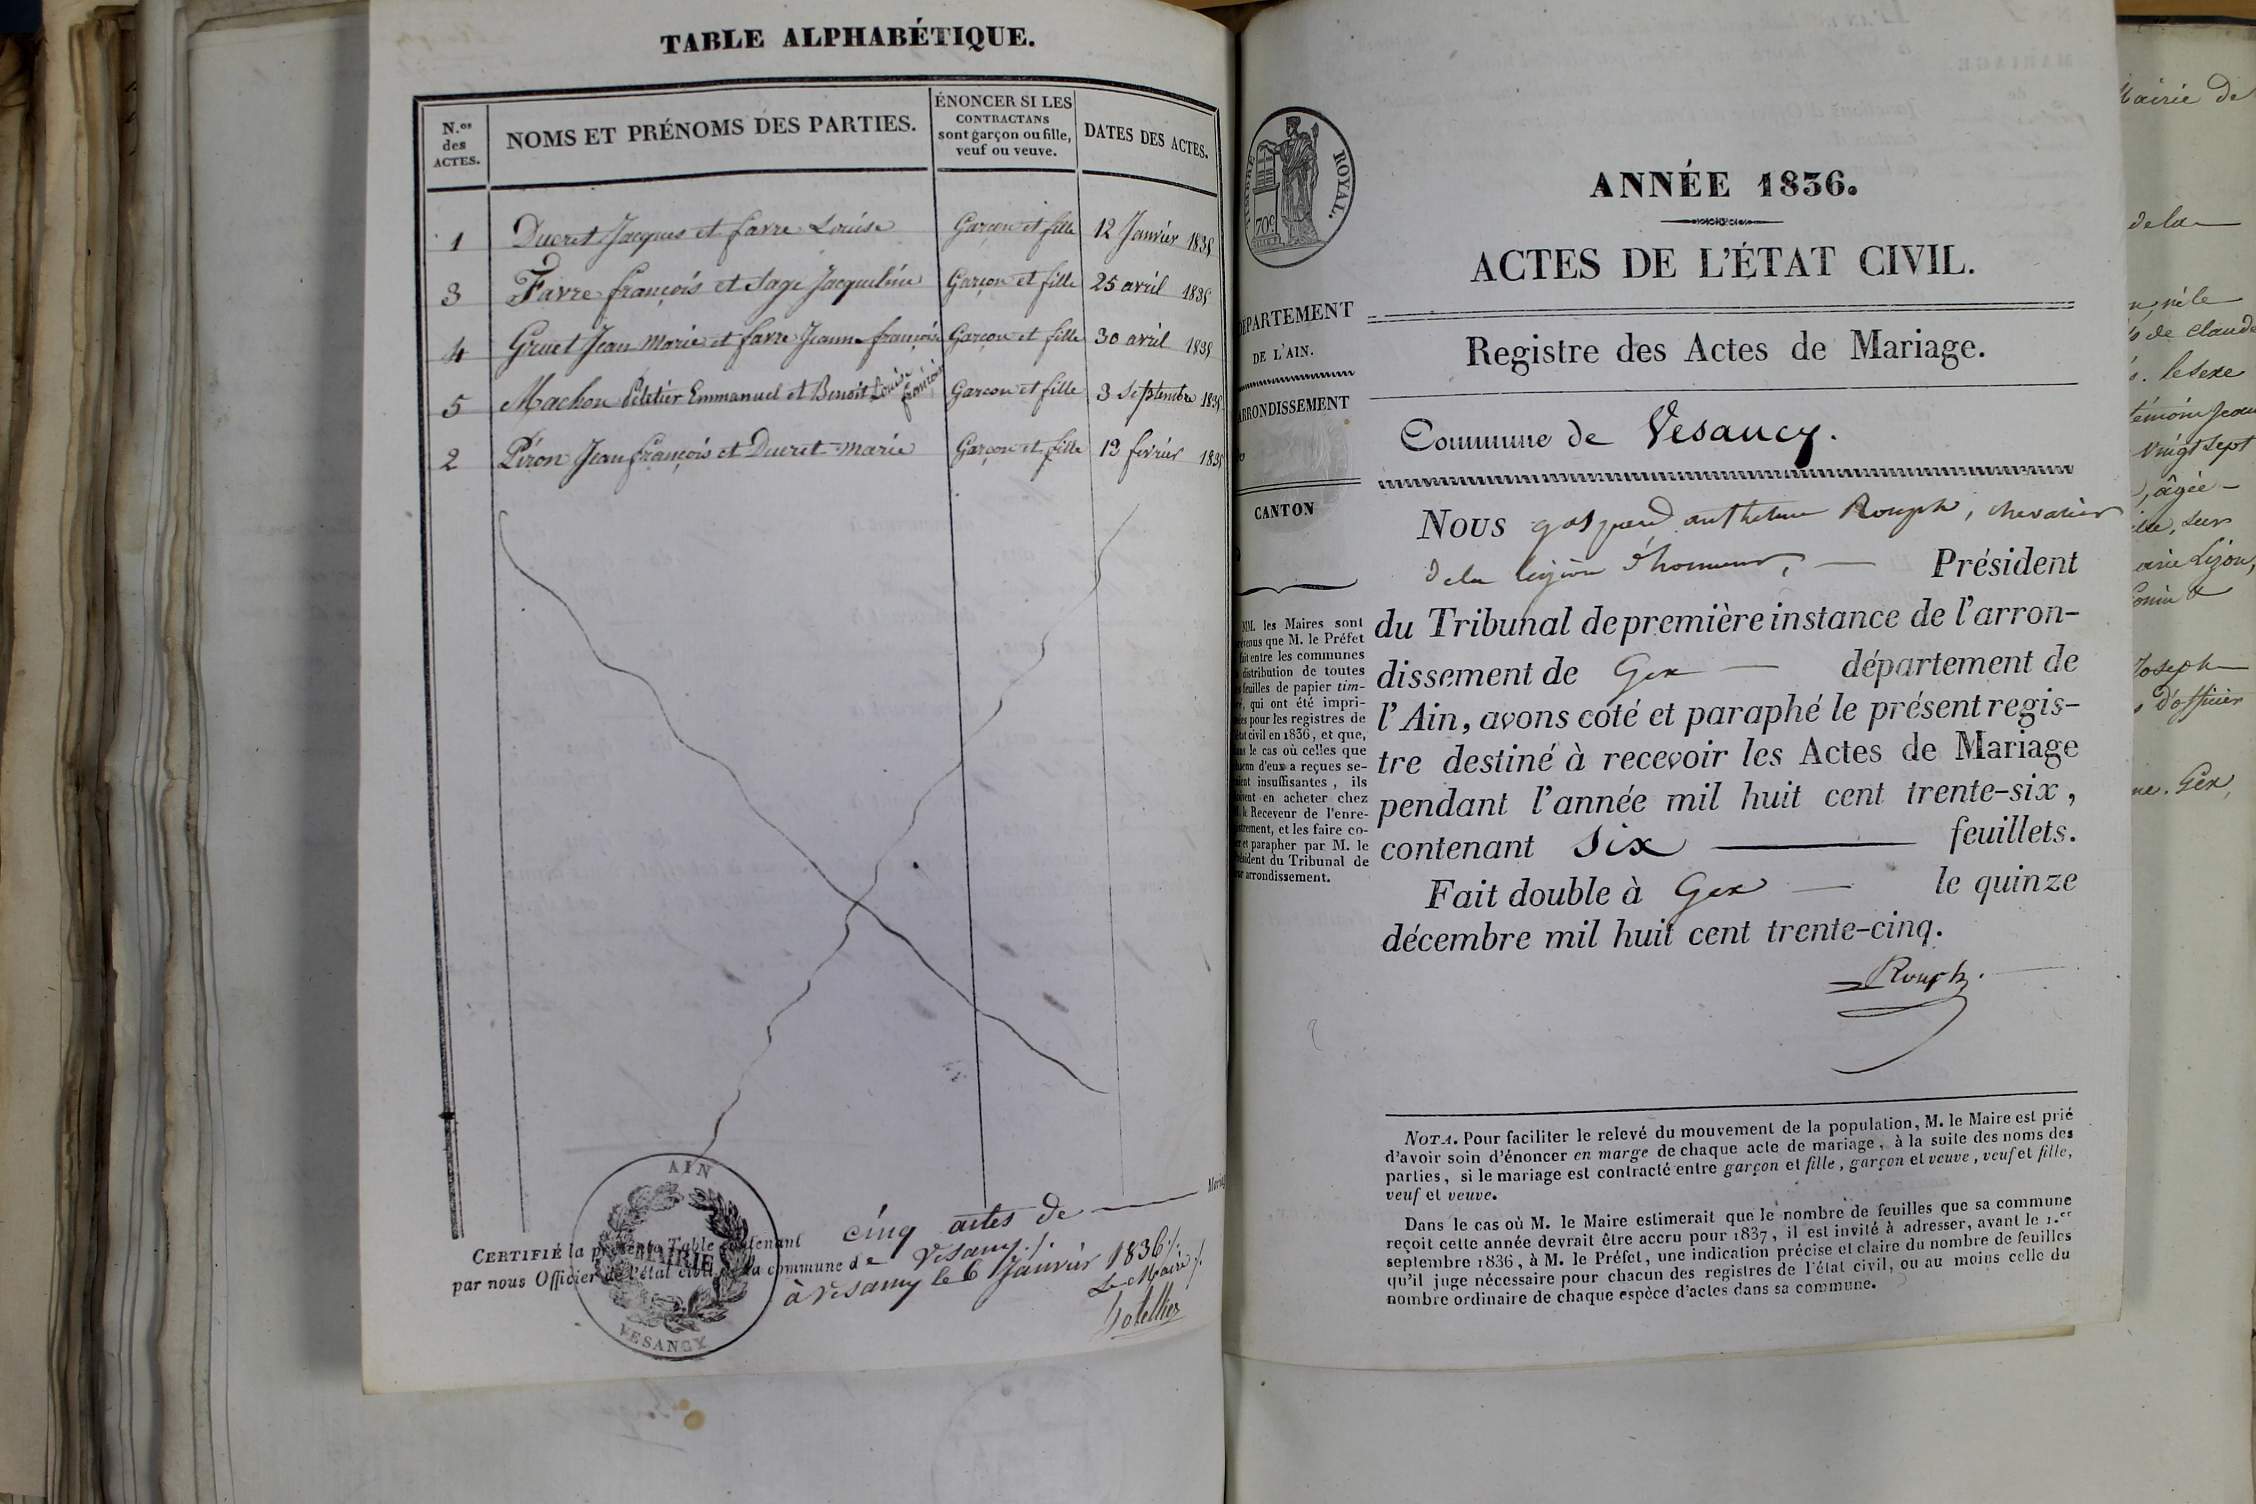 TABLE ALPHABÉTIQUE.
N.os des ACTES.
NOMS ET PRÉNOMS DES PARTIES.
ÉNONCER SI LES CONTRACTANS sont garçon ou fille, veuf ou veuve.
DATES DES ACTES.
1 Ducret Jacques et favre Louise Garçon et fille 12 Janvier 1835
3 Favre françois et Sage Jacqueline Garçon et fille 25 avril 1835
4 Gruet Jean Marie et favre Jeanne françoise Garçon et fille 30 avril 1835
5 Machon Pelitier Emmanuel et Benoit Louise françoise Garçon et fille 3 Septembre 1835
2 Péron Jean françois et Ducret marie Garçon et fille 13 février 1835
AIN
MAIRIE
VESANCY
CERTIFIÉ la présente Table contenant cinq actes de Mariag
par nous Officier de l'état civil de la commune de Vesancy ./.
à Vesancy le 6 Janvier 1836 ./.
Le Maire ./.
TIMBRE ROYAL.
70c
DEPARTEMENT
DE L'AIN.
ARRONDISSEMENT
CANTON
MM. les Maires sont
prévenus que M. le Préfet
fait entre les communes
distribution de toutes
les feuilles de papier tim-
bré, qui ont été impri-
mées pour les registres de
l'état civil en 1836, et que,
dans le cas où celles que
chacun d'eux a reçues se-
raient insuffisantes, ils
doivent en acheter chez
M. le Receveur de l'enre-
gistrement, et les faire co-
ter et parapher par M. le
Président du Tribunal de
leur arrondissement.
ANNÉE 1836.
ACTES DE L'ÉTAT CIVIL.
Registre des Actes de Mariage.
Commune de Vesancy.
Nous gaspard anthelme Rouph, chevalier
de la legion d'honneur, — Président
du Tribunal de première instance de l'arron-
dissement de Gex — département de
l'Ain, avons coté et paraphé le présent regis-
tre destiné à recevoir les Actes de Mariage
pendant l'année mil huit cent trente-six,
contenant Six — feuillets.
Fait double à Gex — le quinze
décembre mil huit cent trente-cinq.
Rouph.
NOTA. Pour faciliter le relevé du mouvement de la population, M. le Maire est prié
d'avoir soin d'énoncer en marge de chaque acte de mariage, à la suite des noms des
parties, si le mariage est contracté entre garçon et fille, garçon et veuve, veuf et fille,
veuf et veuve.
Dans le cas où M. le Maire estimerait que le nombre de feuilles que sa commune
reçoit cette année devrait être accru pour 1837, il est invité à adresser, avant le 1.er
septembre 1836, à M. le Préfet, une indication précise et claire du nombre de feuilles
qu'il juge nécessaire pour chacun des registres de l'état civil, ou au moins celle du
nombre ordinaire de chaque espèce d'actes dans sa commune.
Mairie de
de la
née le
de Claude
le sexe
témoin Jean
vingt sept
, âgée
Joseph
d'officier
Gex,